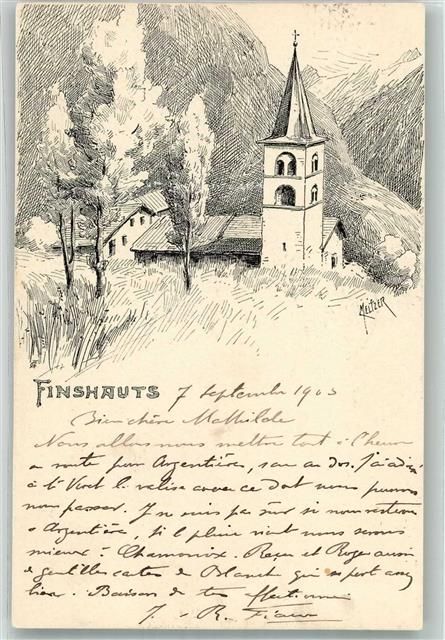 MELTZER
FINSHAUTS 7 septembre 1903
Bien chère Mathilde
Nous allons nous mettre tout à l'heure
en route pour Argentière, sac au dos. J'ai
à la valise avec ce dont nous pouvons
nous passer. Je ne suis pas sûr si nous resterons
à Argentière, si il pleut nous serons
mieux à Chamonix. Reçu et Roger aussi
de gentilles cartes de Blanche qui se port
bien. Baisers de ton
J. R.